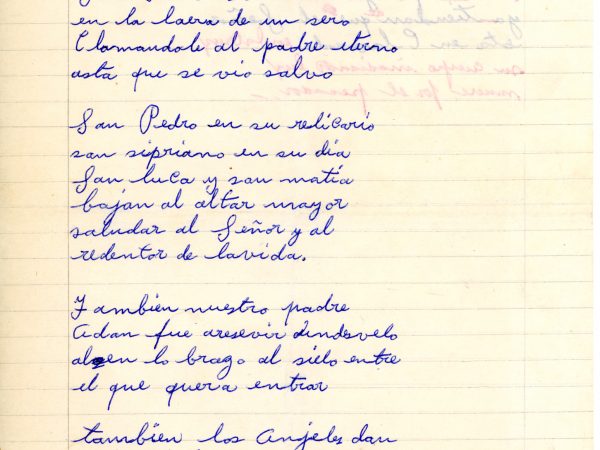 en la laera de un sero
Clamandole al padre eterno
asta que se vio salvo
San Pedro en su relicario
san sipriano en su día
San luca y san matía
bajan al altar mayor
saludar al Señor y al
redentor de lavida.
Tambien nuestro padre
Adan fue aresevir
al en lo brago al sielo entre
el que quera entrar
tambien los Anjeles dan